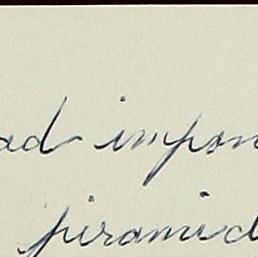 ad impon
piramid